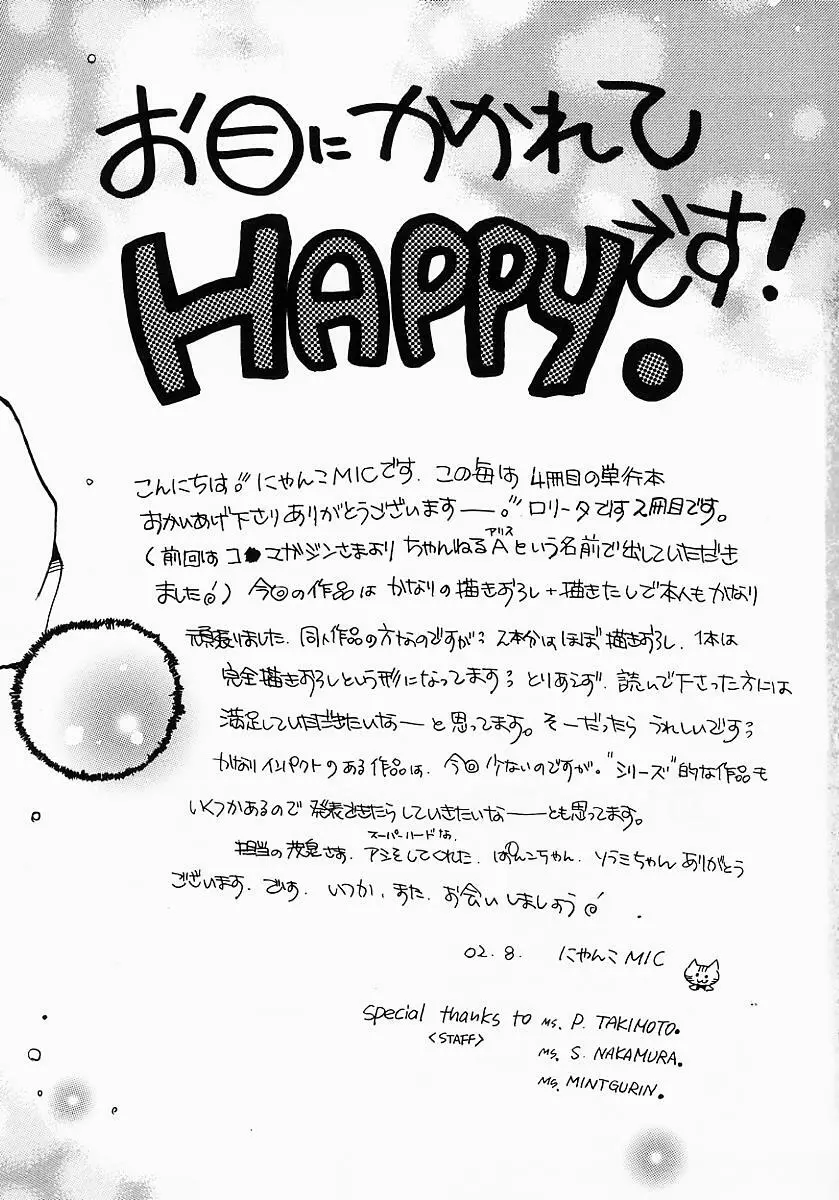 お目にかかれて
HAPPYです!
こんにちは。にゃんこMICです。この毎は 4冊目の単行本
おかいあげ下さりありがとうございますー。ロリータです2冊目です。
(前回はコ●マガジンさまより ちゃんねるAという名前で出していただき
アリス
ました) 今回の作品は かなりの描きおろし+描きたしで本人もかなり
頑張りました. 同人作品の方なのですが; 2本分はほぼ描きおろし. 1本は
完全描きおろしという形になってます; とりあえず. 読んで下さった方には
満足していただきたいなーと思ってます。そーだったら うれしいです;
かなりインパクトのある作品は. 今回少ないのですが. "シリーズ"的な作品も
いくつかあるので 発表できたらしていきたいなーーとも思ってます。
スーパーハードな
担当の さま. アシをしてくれた. ぱんこちゃん. ソラミちゃん ありがとう
ございます. です. いつか. また. お会いしましょう
02.8. にゃんこMIC
special thanks to Ms. P. TAKIMOTO.
<STAFF>
Ms. S. NAKAMURA.
Ms. MINTGURIN.